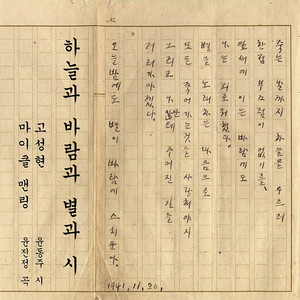 No.
죽는 날까지 하늘을 우르러
한점 부끄럼이 없기를,
잎새에 이는 바람에도
나는 괴로워했다.
별을 노래하는 마음으로
모든 죽어가는것을 사랑해야지
그리고 나안테 주어진 길을
거러가야겠다.
오늘밤에도 별이 바람에 스치운다.
1941.11.20.
하늘과 바람과 별과 시
고성현
윤동주 시
마이클 맨링
윤진정 곡